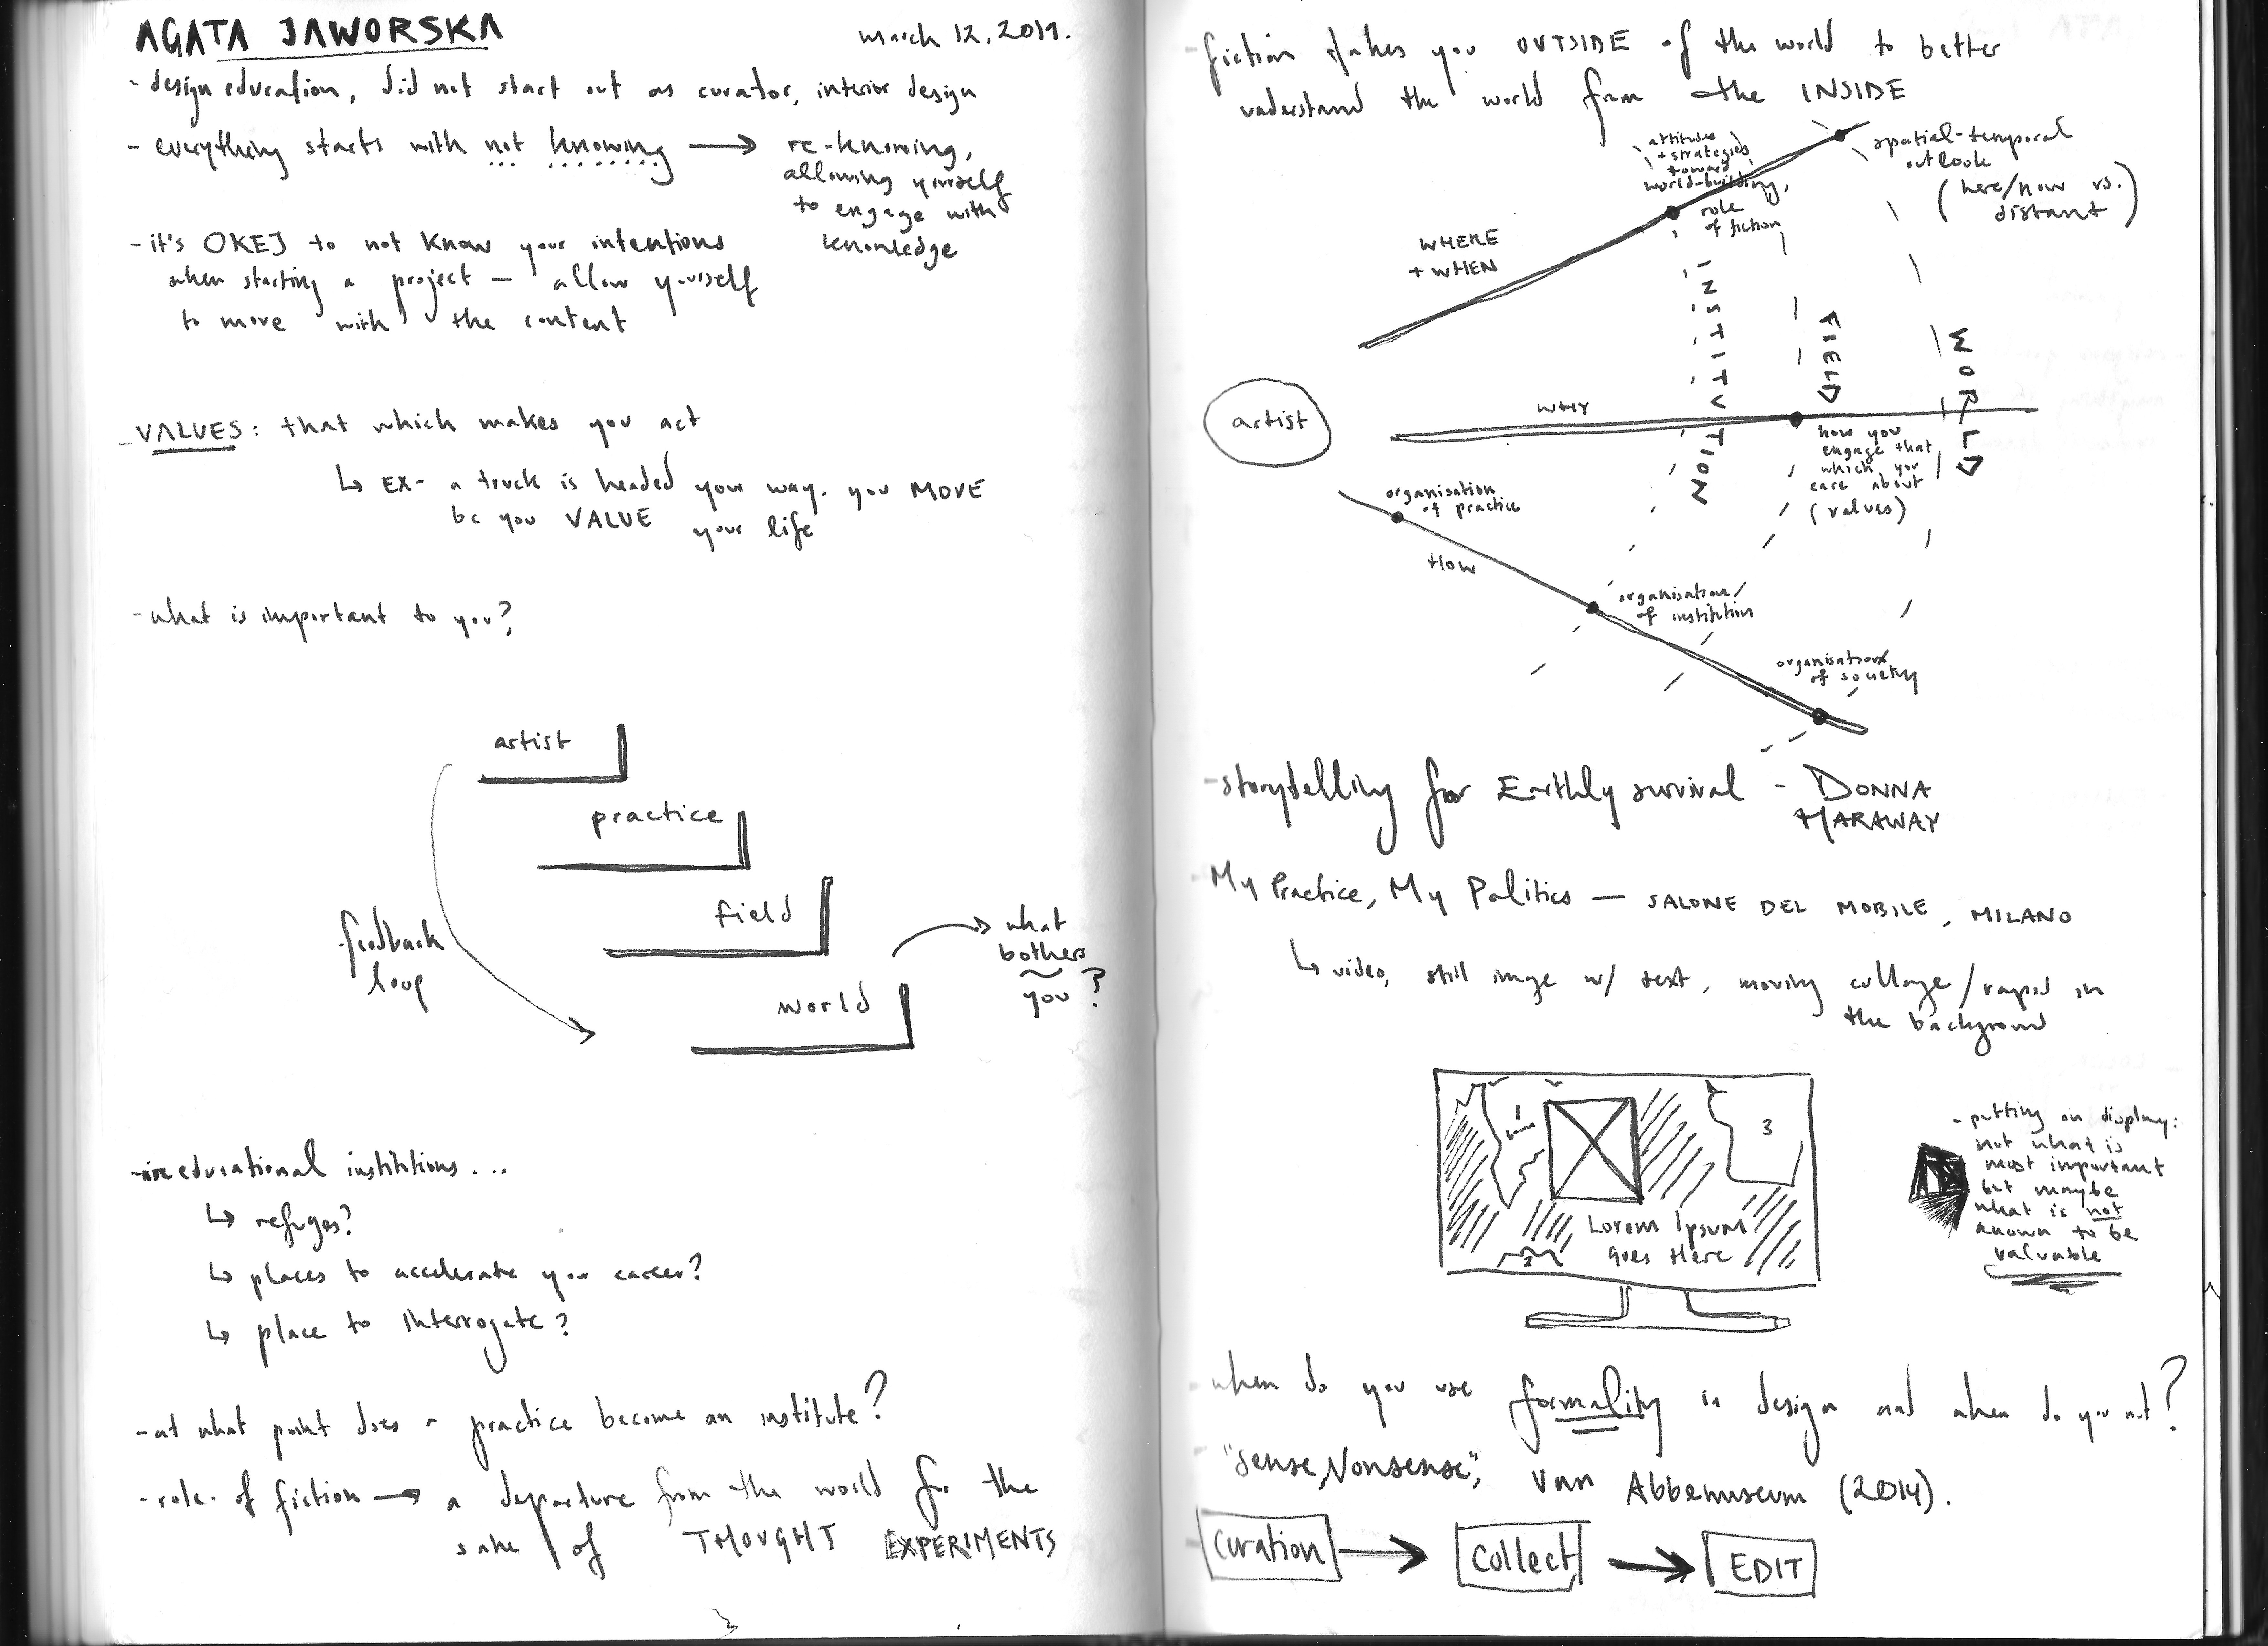 AGATA JAWORSKA
March 12, 2019.
- design education, did not start out as curator, interior design
- everything starts with not knowing → re-knowing,
allowing yourself
to engage with
knowledge
- it's OKEJ to not know your intentions
when starting a project — allow yourself
to move with the content
- VALUES: that which makes you act
↳ EX- a truck is headed your way. you MOVE
bc you VALUE your life
- what is important to you?
artist
practice
field
world
feedback
loop
→ what
bothers
you?
- are educational institutions...
↳ refuges?
↳ places to accelerate your career?
↳ place to interrogate?
- at what point does a practice become an institute?
- role of fiction → a departure from the world for the
sake of THOUGHT EXPERIMENTS
- fiction takes you OUTSIDE of the world to better
understand the world from the INSIDE
attitudes
+ strategies
toward
world-building,
role
of fiction
spatial-temporal
outlook
(here/now vs.
distant)
WHERE
+ WHEN
INSTITUTION
FIELD
WORLD
artist
WHY
how you
engage that
which you
care about
(values)
organisation
of practice
HOW
organisation/
of institution
organisation
of society
- storytelling for Earthly survival - DONNA
HARAWAY
- My Practice, My Politics — SALONE DEL MOBILE, MILANO
↳ video, still image w/ text, moving collage / rapid in
the background
1
3
Lorem Ipsum
Goes Here
2
- putting on display:
not what is
most important
but maybe
what is not
known to be
valuable
- when do you use formality in design and when do you not?
- "Sense, Nonsense", Van Abbemuseum (2014).
- Curation → Collect → EDIT